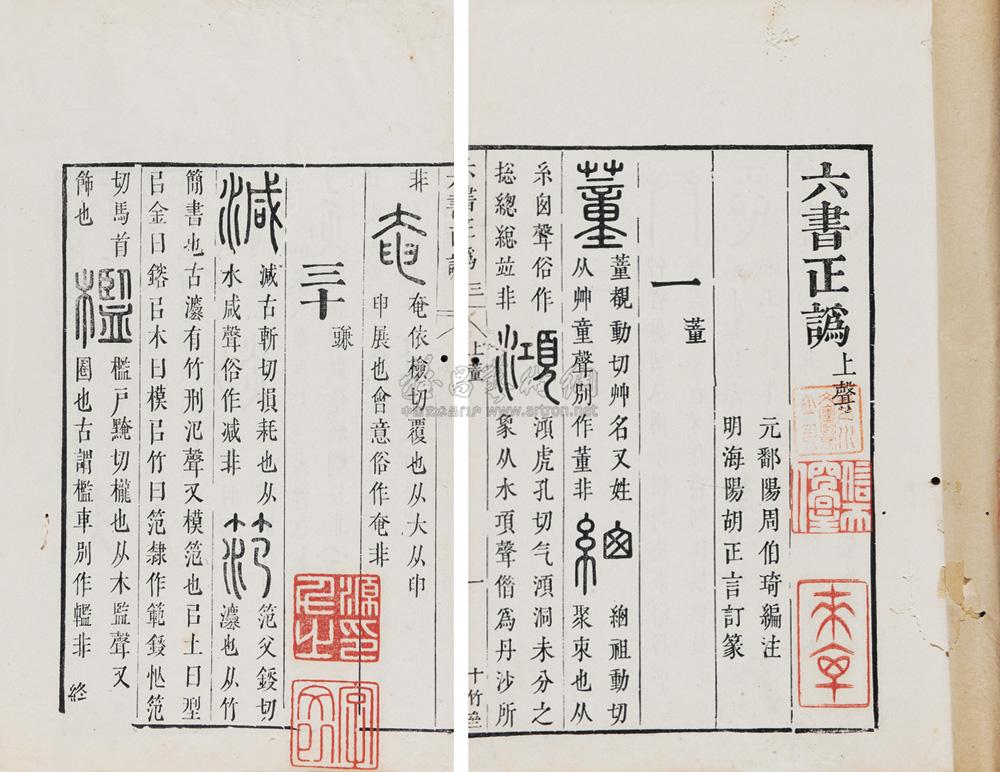 六書正譌
上聲
元鄱陽周伯琦編注
明海陽胡正言訂篆
一
董
蕫
蕫覩動切艸名又姓
从艸童聲別作董非
緫緫祖動切
聚束也从
糸囪聲俗作
捴總縂並非
澒澒虎孔切气澒洞未分之
象从水項聲借爲丹沙所
六書正譌
三
上聲
一
十竹齋
非
奄依檢切覆也从大从申
申展也會意俗作奄非
三十
豏
減減古斬切損耗也从
水咸聲俗作减非
笵笵父錽切
瀳也从竹
簡書也古瀳有竹刑氾聲又模笵也㠯土曰型
㠯金曰鎔㠯木曰模㠯竹曰笵隸作範錽㤄笵
切馬首
飾也
檻檻戶黤切櫳也从木監聲又
圈也古謂檻車別作轞非
終
www.artron.net